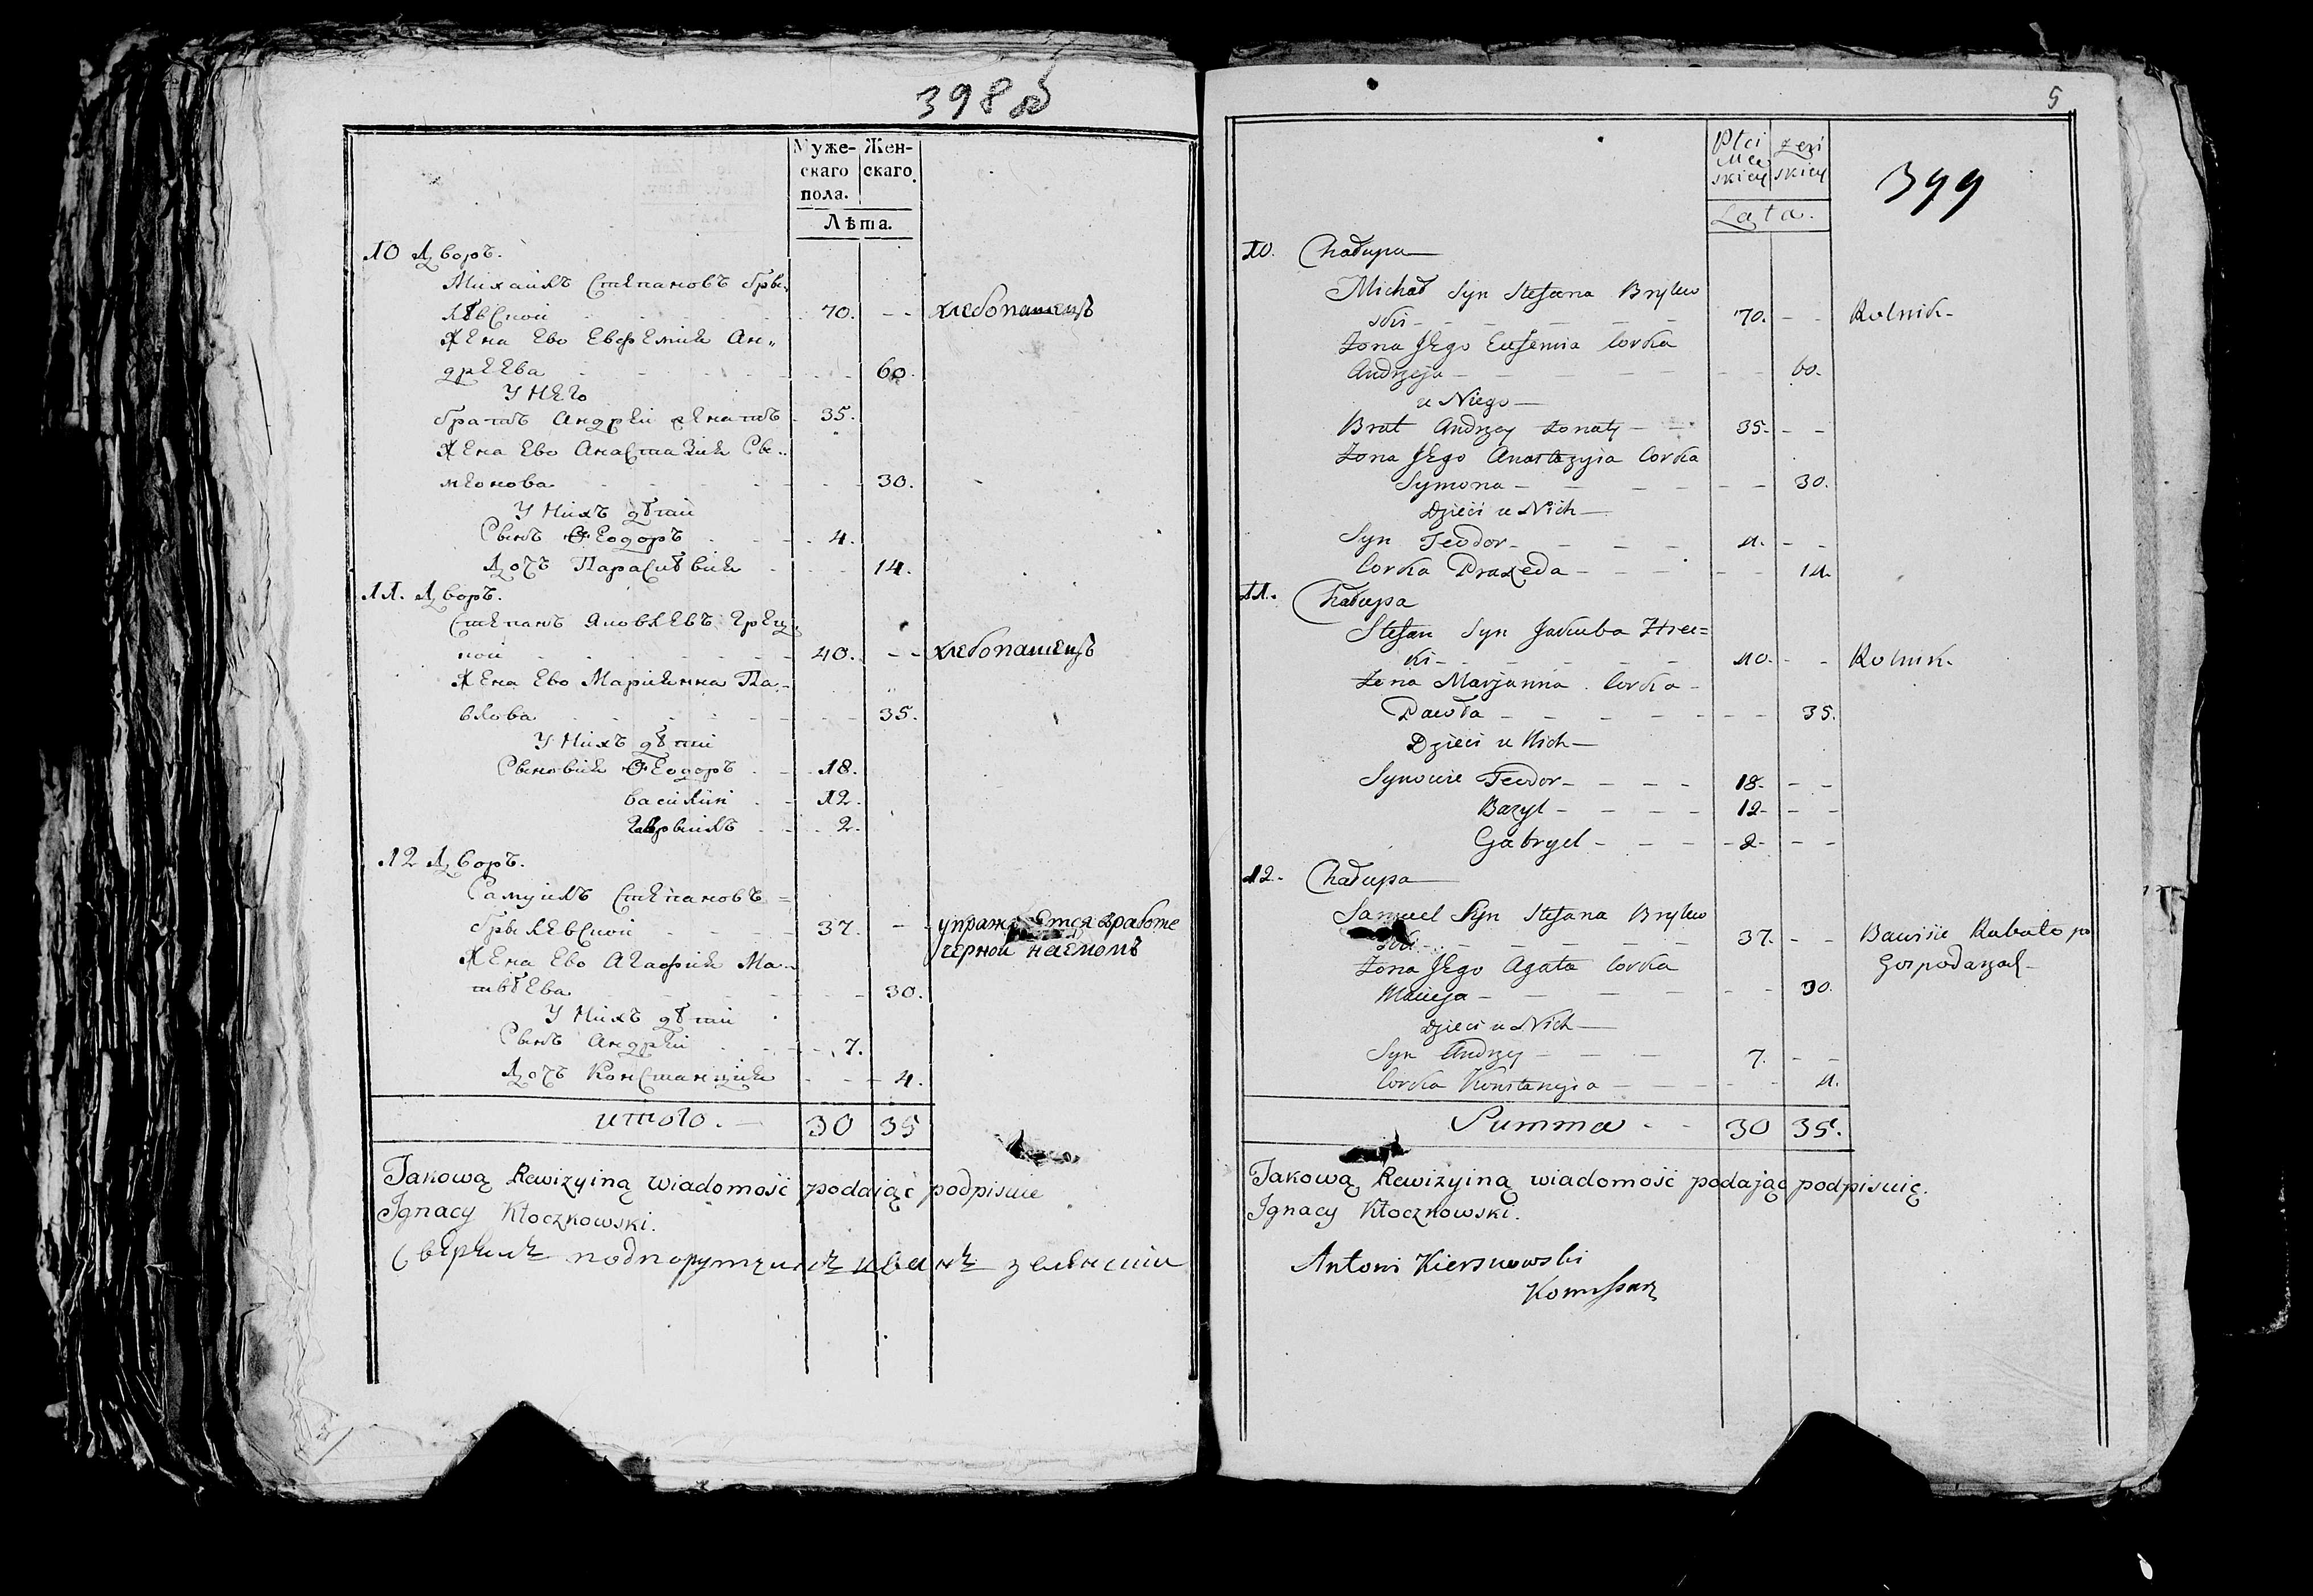 398 об
Муже- Жен-
скаго скаго.
пола.
Лѣта.
10 Дворъ.
Михаилъ Степановъ бры-
лѣвской 70. - - хлебопашецъ
Жена Ево Евфемия Ан„
дреева 60.
У него
братъ Андрей женатъ 35.
Жена Ево Анастазия Се„
меонова 30.
У нихъ дѣти
Сынъ Феодоръ 4.
Дочь Параскѣвия 14.
11. Дворъ.
Степанъ Яковлевъ Грец„
кой 40. - - хлебопашецъ
Жена Ево Мариянна Па-
влова 35.
У нихъ дѣти
Сыновия Феодоръ 18.
Василий 12.
Гаврыилъ 2.
12 Дворъ.
Самуилъ Степановъ =
брылевской 37. - - упражняется вработе
Жена Ево Агафия Ма- черной наемомъ
твѣева 30.
У нихъ дѣти
Сынъ Андрей 7.
Дочь Констанция 4.
итого. 30 35
Takową Rewizyiną wiadomość podaiąc podpisuie
Ignacy Kłoczkowski.
Сверялъ подпорутчикъ Иванъ
5
Płci żeń
Mę skiey
skiey
399
Lata.
10. Chałupa
Michał Syn Stefana Brylew
ski - 70. - - Rolnik -
Żona Jego Eufemia Corka
Andrzeja - 60.
u Niego -
Brat Andrzey żonaty - 35. - -
Żona Jego Anastazyia Corka
Symona - 30.
Dzieci u Nich -
Syn Teodor - 4. - -
Corka Praxeda - 14.
11. Chałupa
Stefan Syn Jakuba Hrec=
ki - 40. - - Rolnik -
Żona Marjanna Corka -
Pawła - 35.
Dzieci u Nich -
Synowie Teodor - 18. - -
Bazyl - 12 - - -
Gabryel - 2 - - -
12. Chałupa
Samuel Syn Stefana Brylew
ski - 37. - - Bawi sie Rabato po
Żona Jego Agata Corka Gospodarzach -
Macieja - 30.
Dzieci u Nich -
Syn Andrzey - 7. - -
Corka Konstancyia - 4.
Summa - - 30 35.
Takową Rewizyiną wiadomość podając podpisuię.
Ignacy Kłoczkowski.
Antoni Kiersnowski
Komissarz